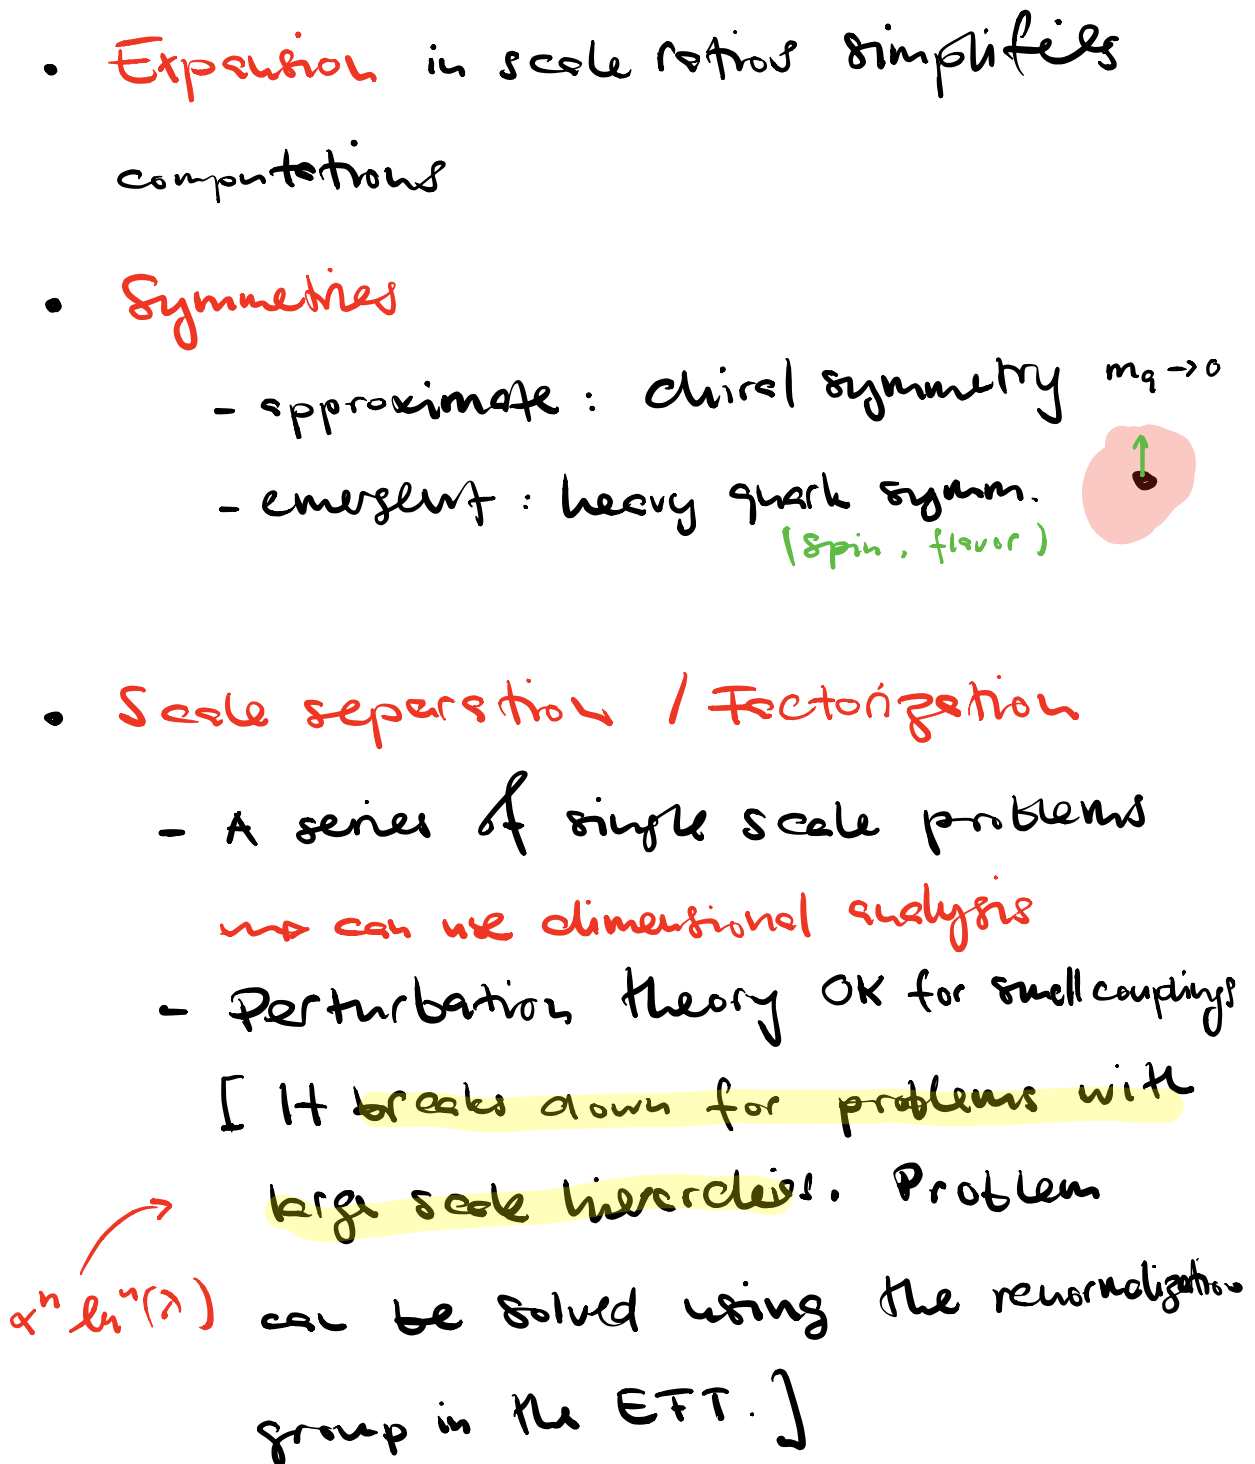 • Expansion in scale ratios simplifies
computations
• Symmetries
- approximate : chiral symmetry m_q → 0
- emergent : heavy quark symm.
(spin, flavor)
• Scale separation / Factorization
- A series of single scale problems
⇝ can use dimensional analysis
- Perturbation theory OK for small couplings
[ It breaks down for problems with
large scale hierarchies. Problem
α^n ln^n(λ) can be solved using the renormalization
group in the EFT. ]